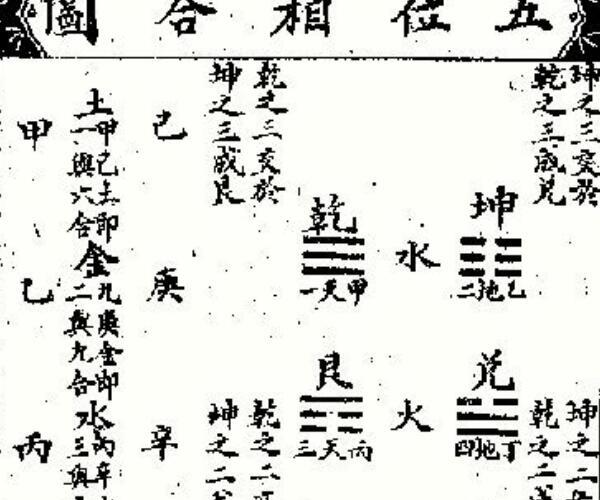 五位相合圖
坤之三交於
乾之三成兌
坤
乙地二
兌
丁地四
坤之二
乾之二
水
火
乾
甲天一
艮
丙天三
乾之三交於
坤之三成艮
乾之二
坤之二
己
庚
辛
土
甲己土即
一與六合
金
乙庚金即
二與九合
水
丙辛
三與
甲
乙
丙